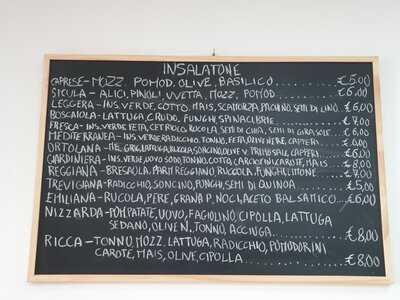 INSALATONE
CAPRESE-MOZZ. POMOD. OLIVE, BASILICO............€5.00
SICULA-ALICI, PINOLI, UVETTA, MOZZ, POMOD............€6.00
LEGGERA-INS.VERDE, COTTO, MAIS, SCAMORZA, PACHINO, SEMI DI LINO..€6,00
BOSCAIOLA-LATTUGA, CRUDO, FUNGHI, SPINACI, BRIE............€7,00
FRESCA-INS.VERDE, FETA, CETRIOLO, RUCOLA, SEMI DI CHIA, SEMI DI GIRASOLE....6,00
MEDITERRANEA-INS.VERDE, RADICCHIO, TONNO, FETA, OLIVE NERE, CAPPERI....€6,00
ORTOLANA-LATTUGA, RUCOLA, CAPPERI....€6.00
GIARDINIERA-INS.VERDE, UOVO SODO, TONNO, COTTO, CARCIOFINI, CAROTE, MAIS....€8.00
REGGIANA-BRESAOLA, PARMIREGGIANO, RUCOLA, FUNGHI, LIMONE............€7.00
TREVIGIANA-RADICCHIO, SONCINO, FUNGHI, SEMI DI QUINOA............€5,00
EMILIANA-RUCOLA, PERE, GRANA P. NOCI, ACETO BALSAMICO......€6,00
NIZZARDA-POM, PATATE, UOVO, FAGIOLINO, CIPOLLA, LATTUGA
SEDANO, OLIVE N. TONNO, ACCIUGA............€8,00
RICCA-TONNO, MOZZ. LATTUGA, RADICCHIO, POMODORINI
CAROTE, MAIS, OLIVE, CIPOLLA............€8,00